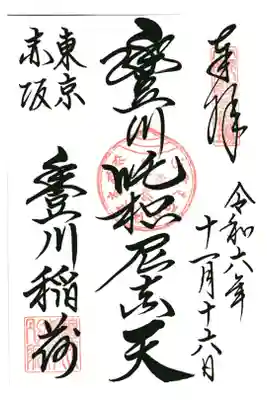 奉拝
令和六年
十一月十六日
豊川吒枳尼真天
東京
赤坂
豊川稲荷